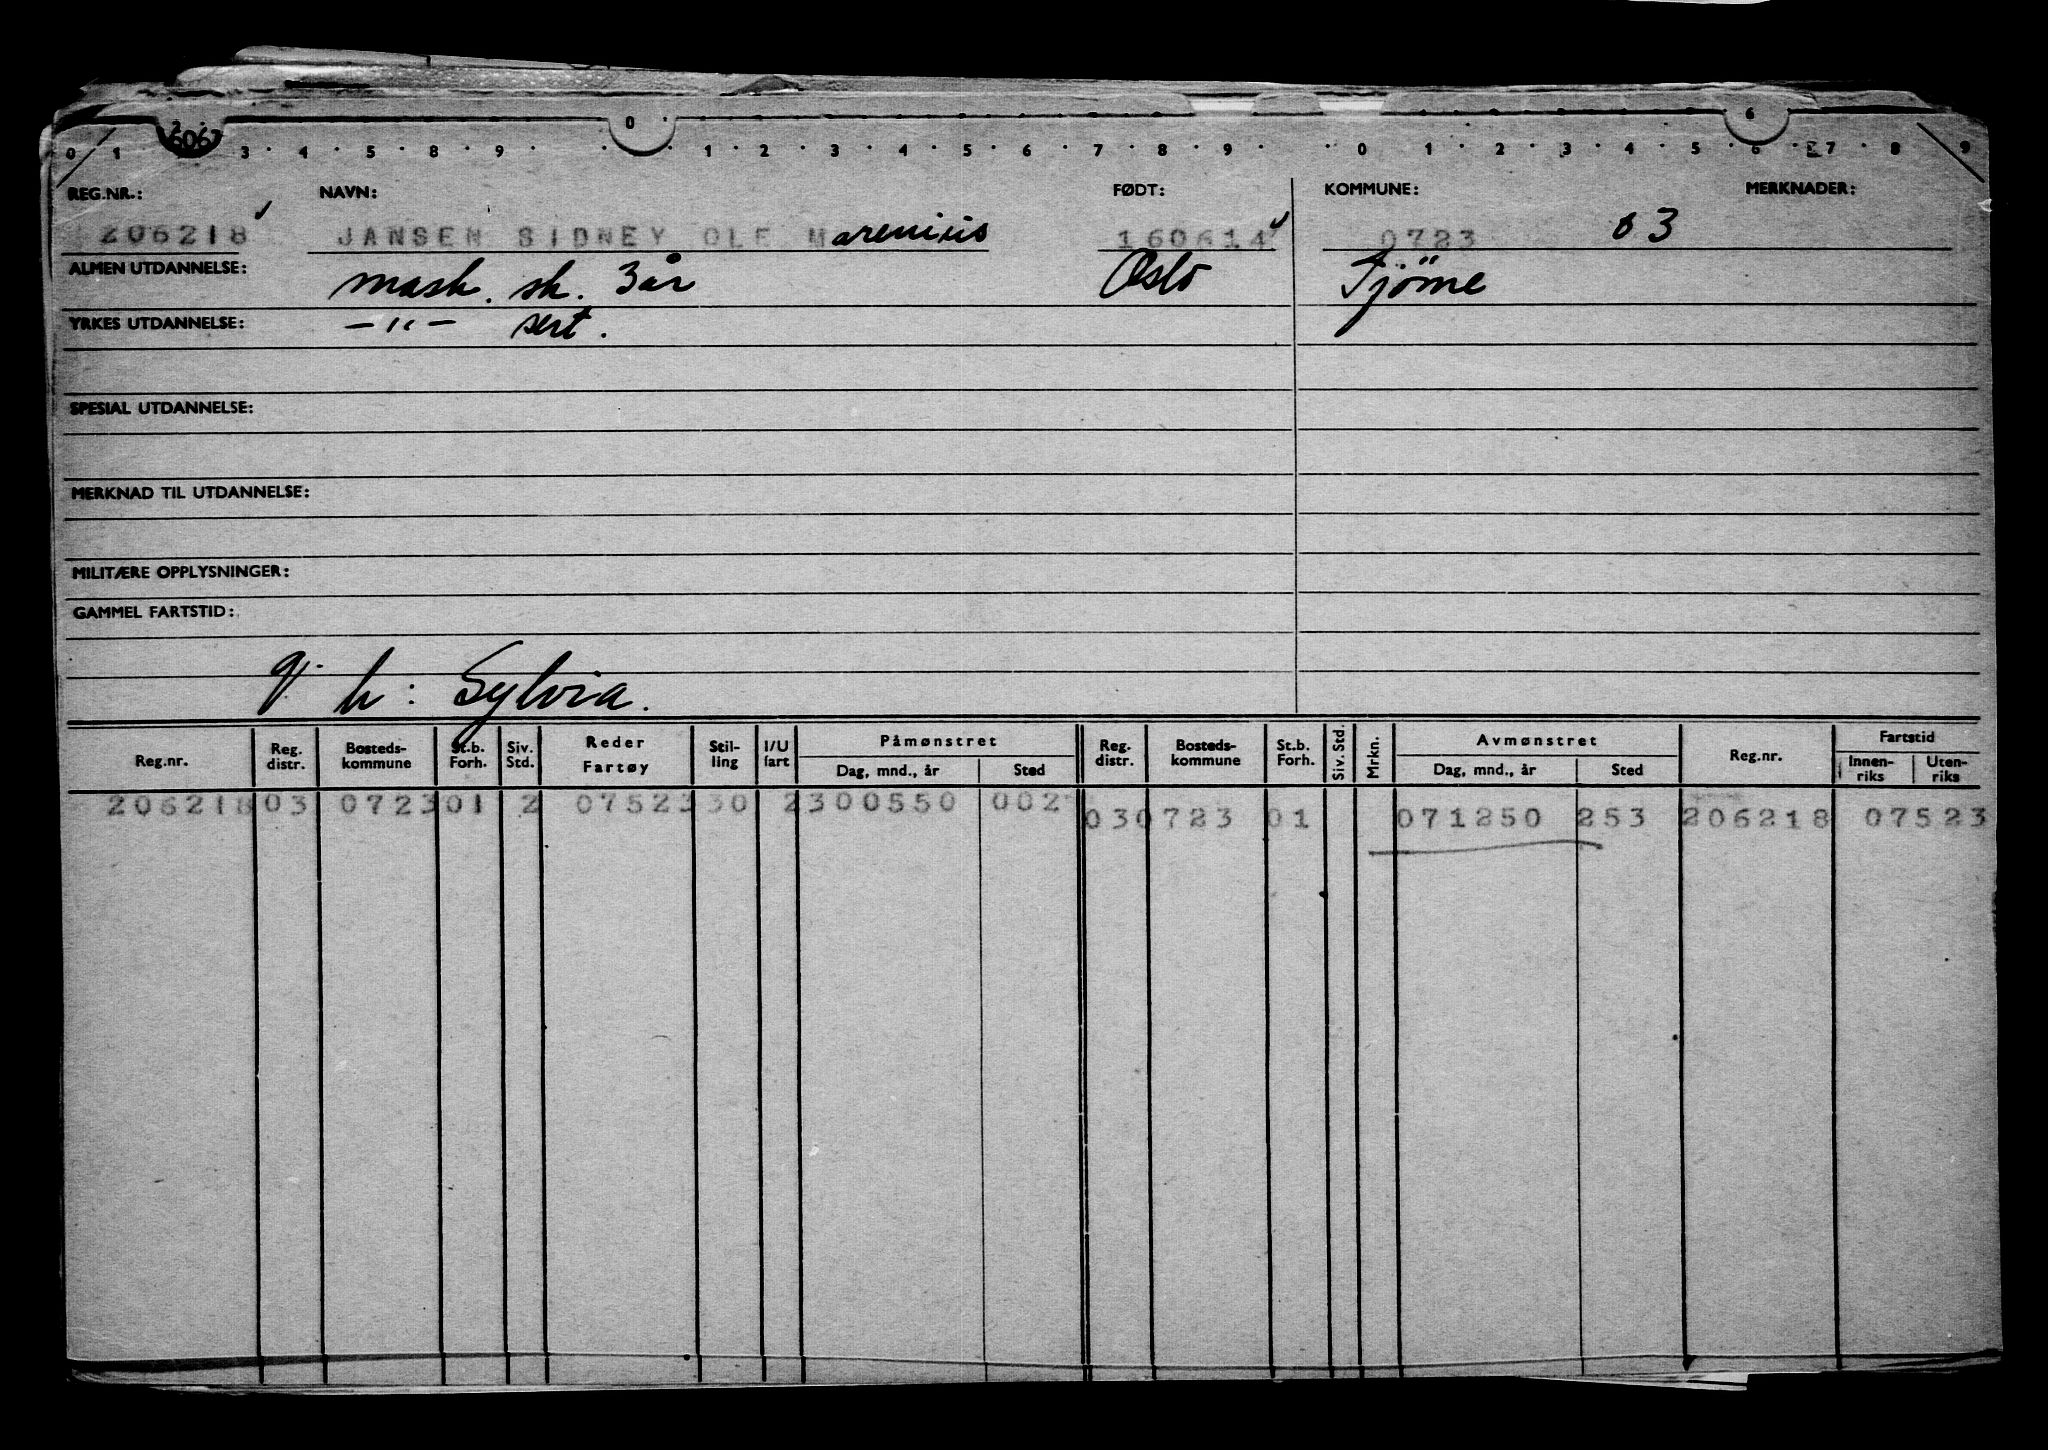 6067 0 6
0 1 3 4 5 8 9 1 2 3 4 5 6 7 8 9 0 1 2 3 4 5 6 7 8 9
REG.NR.: NAVN: FØDT: KOMMUNE: MERKNADER:
206218 JANSEN SIDNEY OLE Marenius 160614 0723 03
ALMEN UTDANNELSE: mask. sk. 3 år Oslo Tjöme
YRKES UTDANNELSE: —"— sert.
SPESIAL UTDANNELSE:
MERKNAD TIL UTDANNELSE:
MILITÆRE OPPLYSNINGER:
GAMMEL FARTSTID:
g. h: Sylvia.
Reg.nr. Reg. distr. Bosteds-kommune St.b. Forh. Siv. Std. Reder Fartøy Stil-ling I/U fart Påmønstret Dag, mnd., år Sted Reg. distr. Bosteds-kommune St.b. Forh. Siv. Std. Mrkn. Avmønstret Dag, mnd., år Sted Reg.nr. Fartstid Innen-riks Uten-riks
206218 03 0723 01 2 07523 30 2 300550 002 030723 01 071250 253 206218 07523